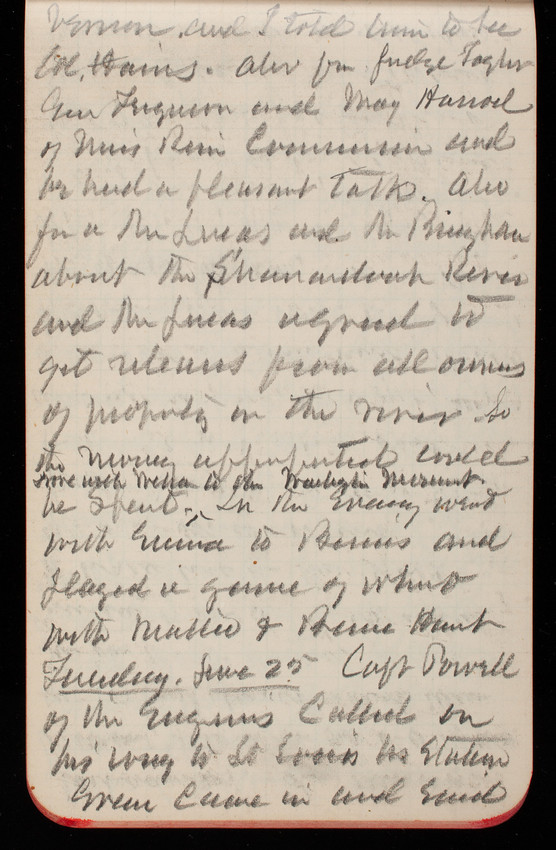 Vernon, and I told him to see
Col, Hains. Also saw Judge Taylor
Gen Ferguson and Maj Harrod
of Miss River Commission and
we had a pleasant talk. Also
saw Mr Lucas and Mr Bingham
about the Shenandoah River
and Mr Lucas agreed to
get releases from all owners
of property on the river So
the money appropriated could
Rove with to the Washington Monument
be Spent. In the Evening went
with Emma to Bemis and
played a game of whist
with Mattie & Bemie Hunt
Tuesday. June 25 Capt Powell
of the Engineers Called on
his way to St Louis his Station
Green Came in and said